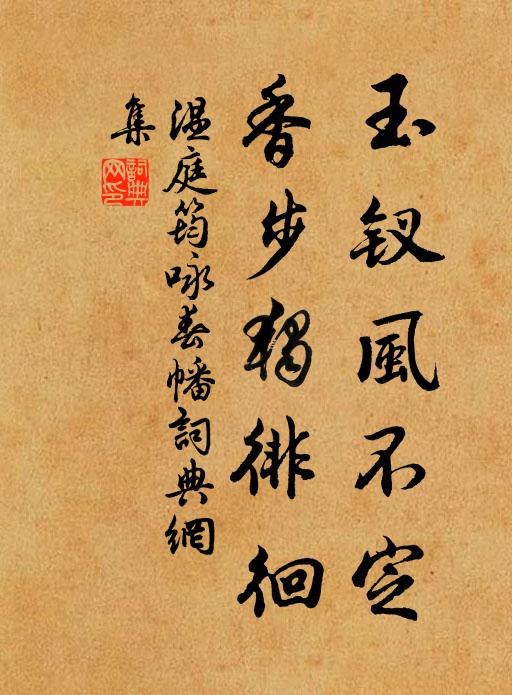 玉釵風不定
香步獨徘徊
溫庭筠詠春幡詞典網
集
詞典
網印